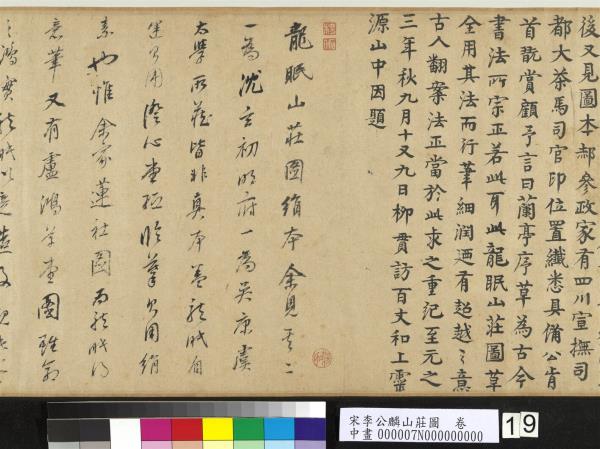 後又見圖本郝參政家有四川宣撫司
都大茶馬司官印位置纖悉具備公肯
首翫賞顧予言曰蘭亭序草為古今
書法所宗正若此耳此龍眠山莊圖草
全用其法而行筆細潤迺有超越之意
古人翻案法正當於此求之重紀至元之
三年秋九月十又九日柳貫訪百丈和上靈
源山中因題
龍眠山莊圖絹本余見其二
一為沈玄初明府一為吳康虞
太學所藏皆非真本蓋龍眠自
運必用澄心堂紙臨摹必用絹
素也惟余家蓮社圖為龍眠得
意筆又有盧鴻草堂圖雖
宋李公麟山莊圖 卷
中畫 000007N000000000
19